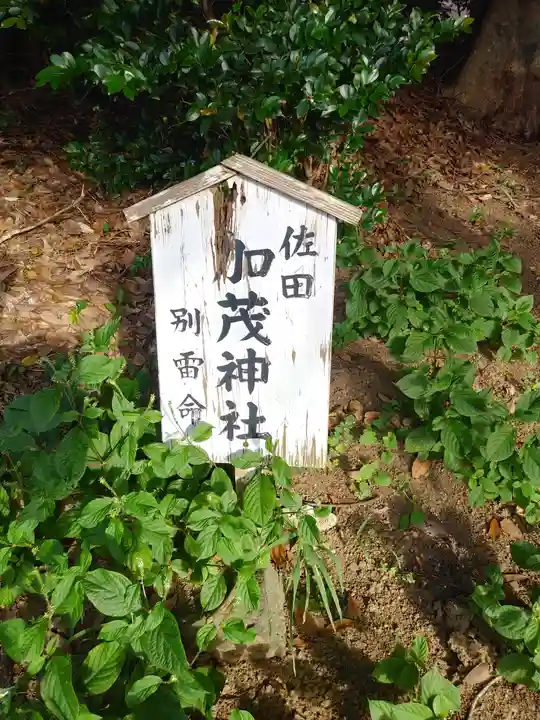 佐田
加茂神社
別雷命